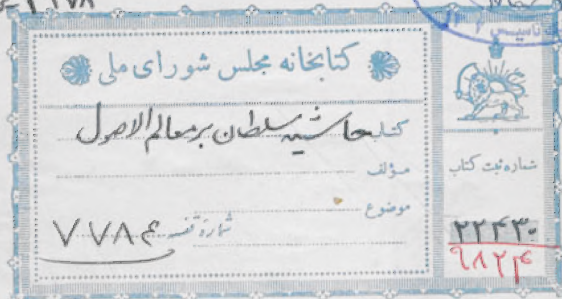 کتابخانه مجلس شورای ملی
کتاب حاشیه سلطان بر معالم الاصول
مؤلف
موضوع
شماره قفسه ۷۷۸۴
شماره ثبت کتاب
۲۲۴۳۰
۹۸۲۴
تأسیس ۱۳۰۲